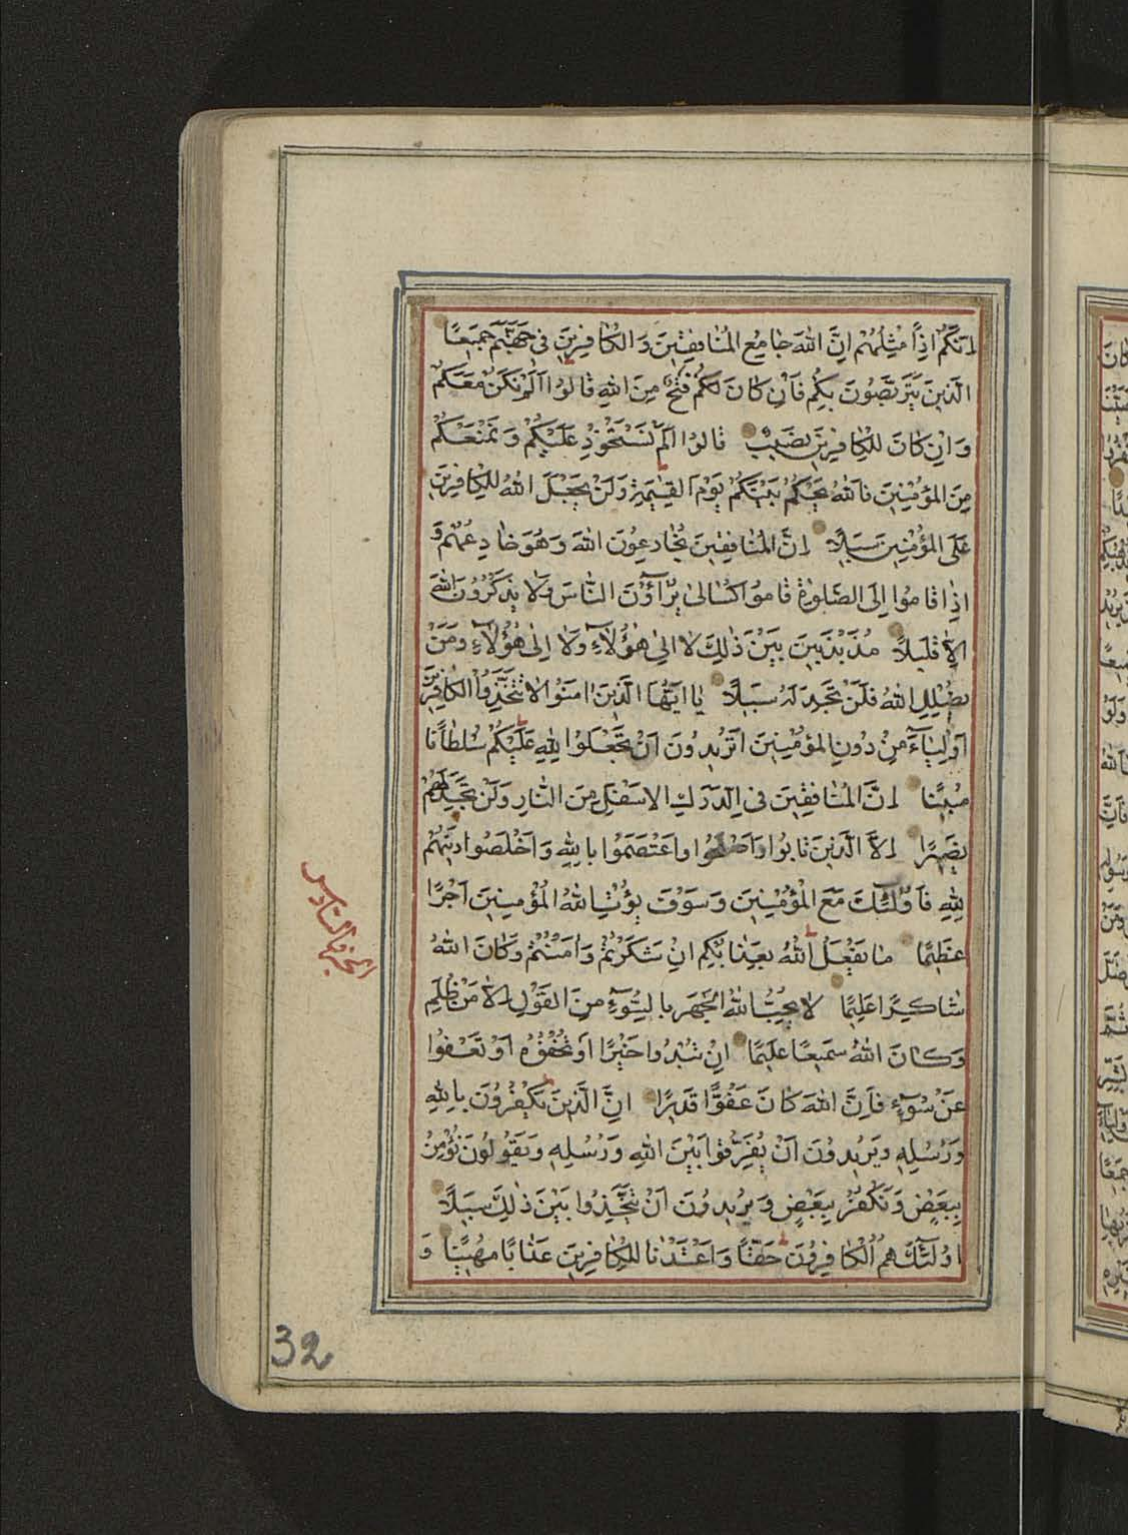 اِنَّكُمْ اِذًا مِثْلُهُمْ اِنَّ اللهَ جَامِعُ الْمُنَافِقِينَ وَالْكَافِرِينَ فِى جَهَنَّمَ جَمِيعًا
الَّذِينَ يَتَرَبَّصُونَ بِكُمْ فَاِنْ كَانَ لَكُمْ فَتْحٌ مِنَ اللهِ قَالُوا اَلَمْ نَكُنْ مَعَكُمْ
وَاِنْ كَانَ لِلْكَافِرِينَ نَصِيبٌ قَالُوا اَلَمْ نَسْتَحْوِذْ عَلَيْكُمْ وَنَمْنَعْكُمْ
مِنَ الْمُؤْمِنِينَ فَاللهُ يَحْكُمُ بَيْنَكُمْ يَوْمَ الْقِيٰمَةِ وَلَنْ يَجْعَلَ اللهُ لِلْكَافِرِينَ
عَلَى الْمُؤْمِنِينَ سَبِيلًا اِنَّ الْمُنَافِقِينَ يُخَادِعُونَ اللهَ وَهُوَ خَادِعُهُمْ وَ
اِذَا قَامُوا اِلَى الصَّلٰوةِ قَامُوا كُسَالىٰ يُرَآؤُنَ النَّاسَ وَلَا يَذْكُرُونَ اللهَ
اِلَّا قَلِيلًا مُذَبْذَبِينَ بَيْنَ ذٰلِكَ لَا اِلىٰ هٰؤُلَآءِ وَلَا اِلىٰ هٰؤُلَآءِ وَمَنْ
يُضْلِلِ اللهُ فَلَنْ تَجِدَ لَهُ سَبِيلًا يَا اَيُّهَا الَّذِينَ اٰمَنُوا لَا تَتَّخِذُوا الْكَافِرِينَ
اَوْلِيَآءَ مِنْ دُونِ الْمُؤْمِنِينَ اَتُرِيدُونَ اَنْ تَجْعَلُوا لِلهِ عَلَيْكُمْ سُلْطَانًا
مُبِينًا اِنَّ الْمُنَافِقِينَ فِى الدَّرْكِ الْاَسْفَلِ مِنَ النَّارِ وَلَنْ تَجِدَ لَهُمْ
نَصِيرًا اِلَّا الَّذِينَ تَابُوا وَاَصْلَحُوا وَاعْتَصَمُوا بِاللهِ وَاَخْلَصُوا دِينَهُمْ
لِلهِ فَاُولٰٓئِكَ مَعَ الْمُؤْمِنِينَ وَسَوْفَ يُؤْتِ اللهُ الْمُؤْمِنِينَ اَجْرًا
عَظِيمًا مَا يَفْعَلُ اللهُ بِعَذَابِكُمْ اِنْ شَكَرْتُمْ وَاٰمَنْتُمْ وَكَانَ اللهُ
شَاكِرًا عَلِيمًا لَا يُحِبُّ اللهُ الْجَهْرَ بِالسُّوٓءِ مِنَ الْقَوْلِ اِلَّا مَنْ ظُلِمَ
وَكَانَ اللهُ سَمِيعًا عَلِيمًا اِنْ تُبْدُوا خَيْرًا اَوْ تُخْفُوهُ اَوْ تَعْفُوا
عَنْ سُوٓءٍ فَاِنَّ اللهَ كَانَ عَفُوًّا قَدِيرًا اِنَّ الَّذِينَ يَكْفُرُونَ بِاللهِ
وَرُسُلِهِ وَيُرِيدُونَ اَنْ يُفَرِّقُوا بَيْنَ اللهِ وَرُسُلِهِ وَيَقُولُونَ نُؤْمِنُ
بِبَعْضٍ وَنَكْفُرُ بِبَعْضٍ وَيُرِيدُونَ اَنْ يَتَّخِذُوا بَيْنَ ذٰلِكَ سَبِيلًا
اُولٰٓئِكَ هُمُ الْكَافِرُونَ حَقًّا وَاَعْتَدْنَا لِلْكَافِرِينَ عَذَابًا مُهِينًا وَ
الجزء السادس
32